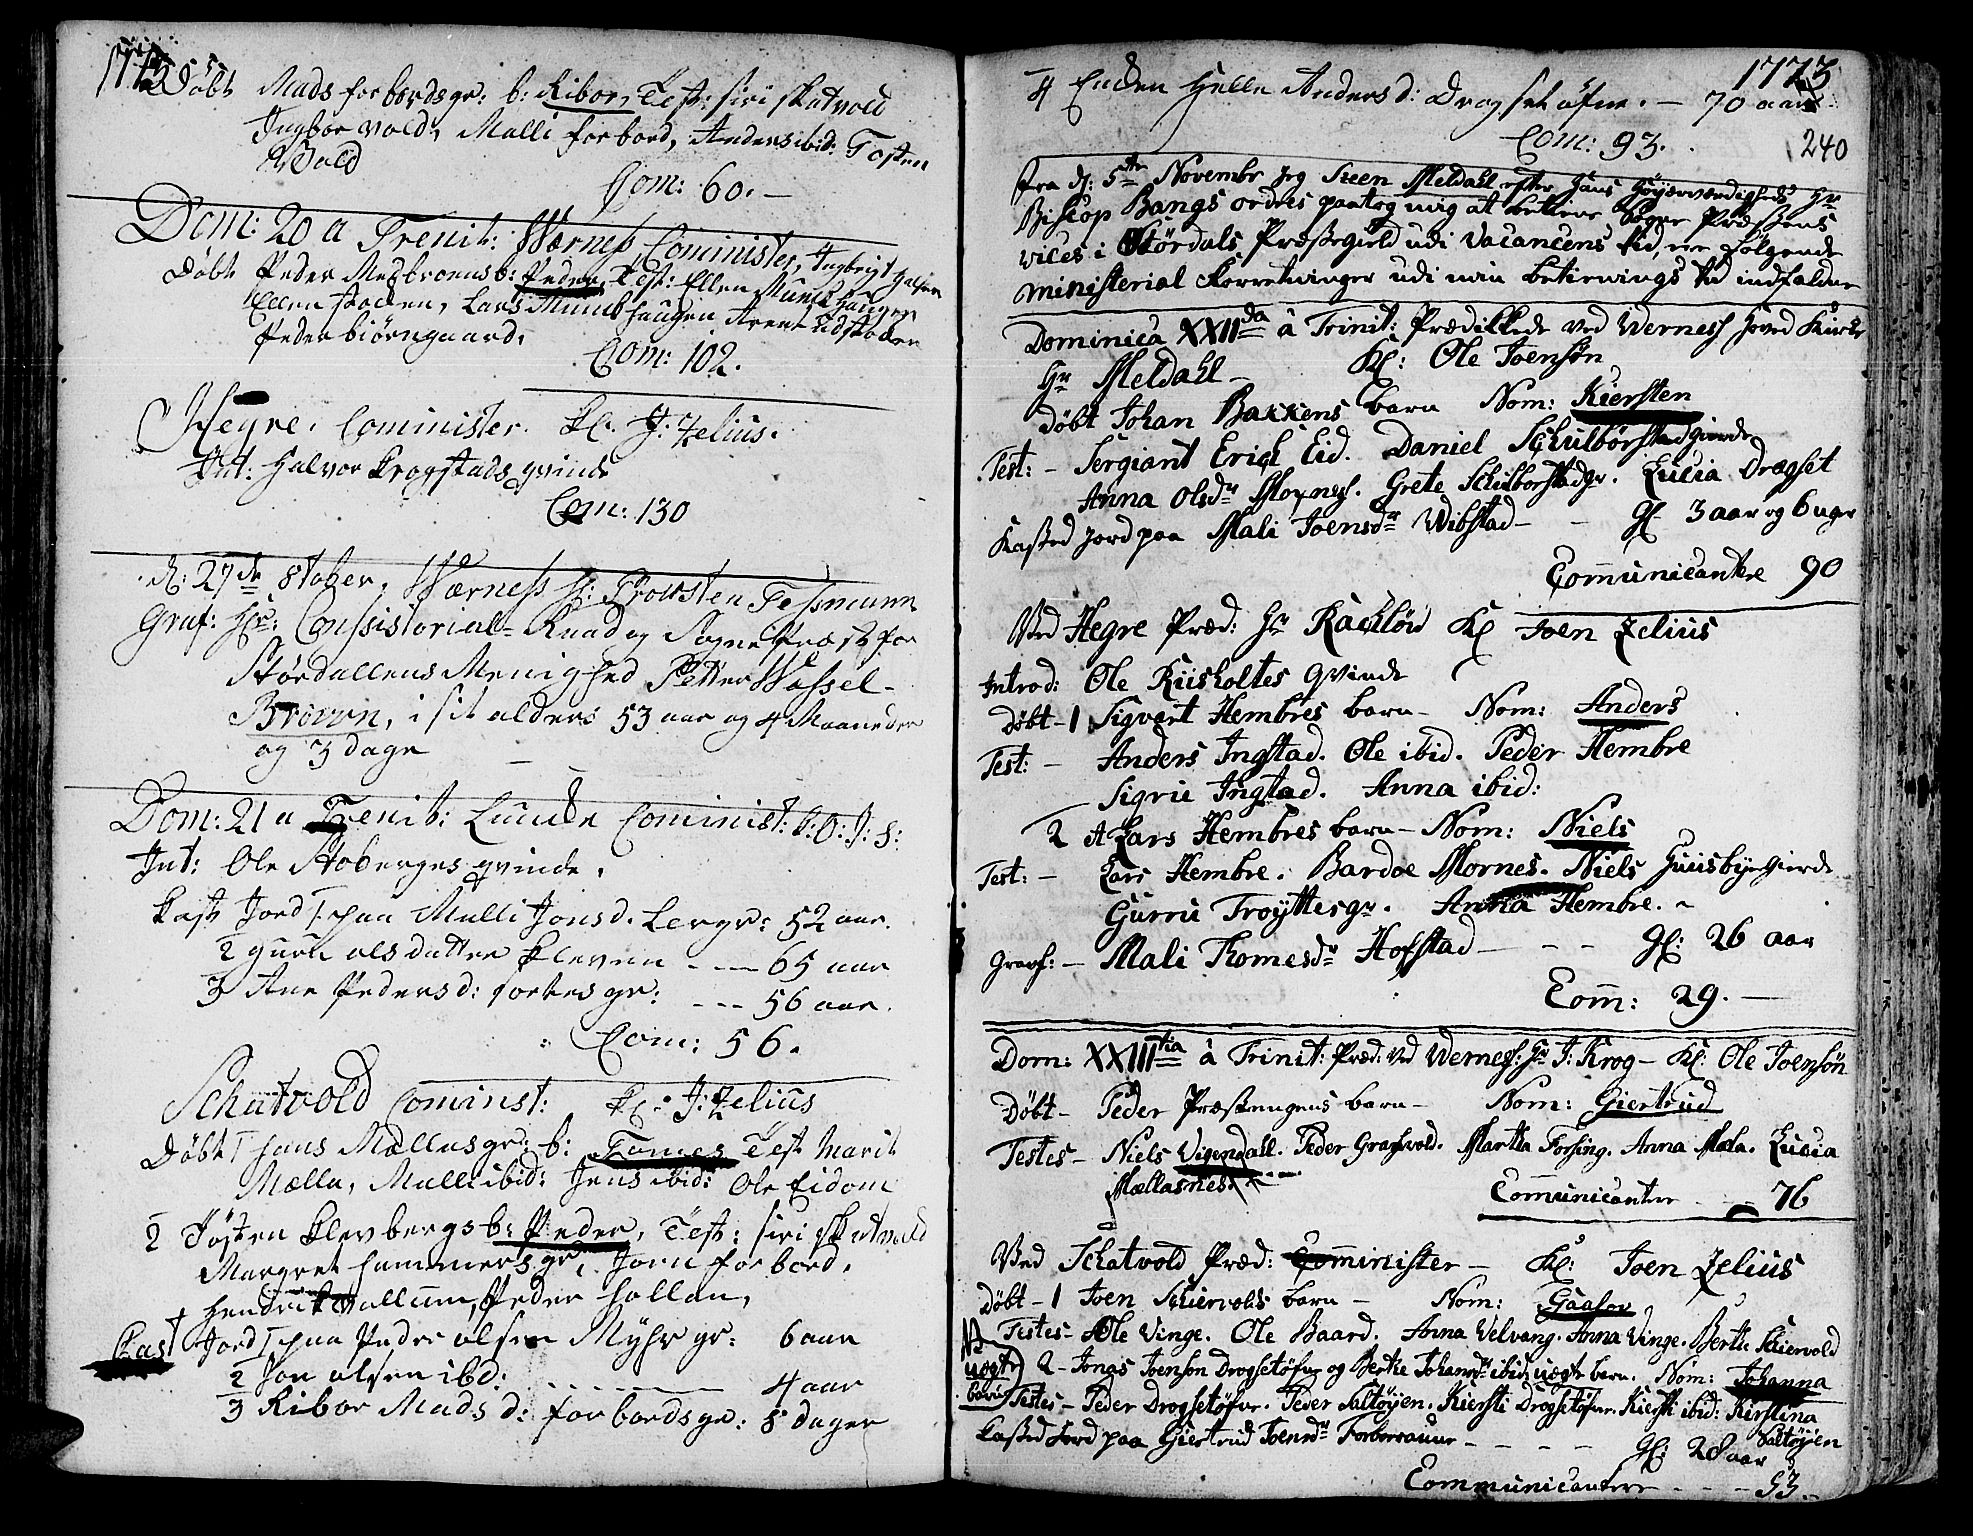 1773
Döbt Mads forbordsgr: b: Ribor, Test: siri skatvold
Ingbor vold, Malli forbord, Anders ibid: Tosten
Wold
Com: 60. -
Dom: 20 a Trenit: Wærness, Cominister,
Döbt Peder b: Peder, Test: Ellen Munkhaugen
Ellen staden, Lars Munkhaugen, Arent udstaden
Peder biörngaard.
Com: 102.
Hegre. Cominister. Kl. J: Zelius.
Int: Halvor Krogstads qvinde
Com: 130
d: 27de 8tober. Wærness H: Prowsten Tessmann
Graf: Hr: Conssistorial-Raad og Sogne Præst for
Størdallens Menighed Petter Wessel-
Brown, i sit alders 53 aar og 4 Maaneder
og 3 dage
Dom: 21 a Trenit: Lunde Cominist: K: O: J: S:
Int: Ole Stobergs qvinde.
Kast Jord 1 paa Malli Jonsd. Lergr: 52 aar.
2 guru olsdatter Kleven - - - 65 aar
3 Ane Pedersd: fortesgr: - - - 56 aar.
Com: 56.
Schatvold Cominst: Kl: J: Zelius
Döbt 1 Hans Mællusgr: b: Tomes Test Marit
Mælla, Malli ibid: Jens ibid: Ole Eidom
2 Josten Klevbergs b: Peder, Test: siri skatvold
Margret hammersgr, Joen forbord.
Hendrik vollum, Peder hollan,
Kast Jord 1 paa Peder olsen Myhr gr: 6 aar
2 Jon olsen ibd: - - - 4 aar
3 Ribor Madsd: forbordsgr: 8 dager
1773
4 Enken Helle Andersd: Drogset öfre. - 70 aar
Com: 93.
240
Fra d: 5te Novembr jeg Steen Meldahl efter Hans Høyærværdigheds Hr
Biscop Bangs ordres paatog mig at betiene Sogne Præstens
vices i Størdals Præstegield udi Vacancens tid, ere følgende
ministerial forretninger udi min betienings tid indfaldne
Dominica XXIIda à Trinit: Prædikkede ved Werness Hoved Kirke
Hr Meldahl - Kl: Ole Joensön
Döbt Johan Bakkens barn Nom: Kiersten
Test: - Sergiant Erich Eid. Daniel Schulbörstad
Anna Olsdr Moxness. Grete Schulborstadgr. Lucia Drogset
Kasted jord paa Mali Joensdr Wibstad - - Gl: 3 aar og 6 uger
Communicantere 90
Ved Hegre Præd: Hr Rachlöw Kl Joen Zelius
Introd: Ole Riisholtes qvinde
Döbt - 1 Sigvart Hembres barn - Nom: Anders
Test: - Anders Ingstad. Ole ibid. Peder Hembre
Sigrie Ingstad. Anna ibid:
2 Lars Hembres barn - Nom: Niels
Test: - Lars Hembre. Bardoe Mornes. Niels Huusbye
Gurru Troyttesgr. Anna Hembre. -
Grav: - Mali Thomesdr Hofstad - - - Gl: 26 aar
Com: 29. -
Dom: XXIIItia à Trinit: Præd: ved Werness: Hr J: Krog - Kl: Ole Joensön
Döbt - Peder Præstengens barn - Nom: Giertrud
Testes - Niels Vigendahl. Peder Graavold. Martha Forsing. Anna Mala. Lucia
Mællasnes.
Communicanter - - - 76
Ved Schatvold Præd: Cominister - Kl: Joen Zelius
Döbt - 1 Joen Schiervolds barn - Nom: Gaalov
Testes - Ole Vinge. Ole Baard. Anna Velvang. Anna Vinge. Berthe Schiervold
NB uægte barn 2 - Jonas Joenson Drogsetöfre og Berthe Johansdr ibid uægte barn. Nom: Johanna
Testes - Peder Drogsetöfre. Peder Saltöyen. Kiersti Drogsetöfre. Kiersti ibid: Kirstina
Saltöyen
Kasted Jord paa Giertrud Joensdr - - - Gl: 28 aar
Communicantere - - - 53.